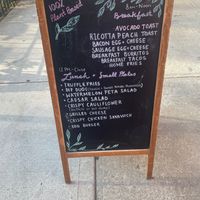 100%
Plant Based
8am - Noon
Breakfast
AVOCADO TOAST
RICOTTA PEACH TOAST
BACON EGG + CHEESE
SAUSAGE EGG + CHEESE
BREAKFAST BURRITOS
BREAKFAST TACOS
HOME FRIES
12 PM - Close
Lunch + Small Plates
• TRUFFLE FRIES
• BUF DUDE
• WATERMELON FETA SALAD
• CAESAR SALAD
• CRISPY CAULIFLOWER
• GRILLED CHEESE
• CRISPY CHICKEN SANDWICH
• BBQ BURGER